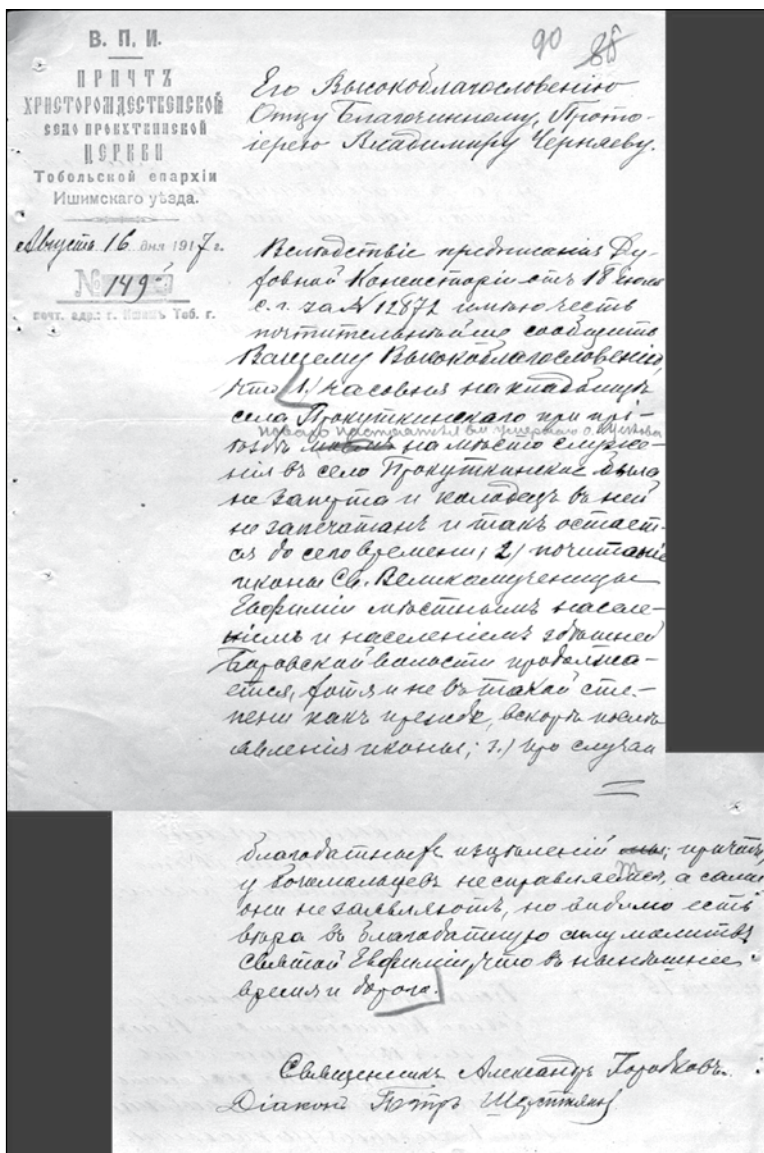 В. П. И.
ПРИЧТЪ
ХРИСТОРОЖДЕСТВЕНСКОЙ
СЕЛО ПРОКУТКИНСКОЙ
ЦЕРКВИ
Тобольской епархіи
Ишимскаго уѣзда.
Августа 16 дня 1917 г.
№ 149
почт. адр.: г. Ишимъ Тоб. г.
90 88
Его Высокоблагословенію
Отцу Благочинному, Прото-
іерею Владимиру Черняеву.
Вслѣдствіе предписанія Ду-
ховной Консисторіи отъ 18 Іюля
с. г. за № 12872 имѣю честь
почтительнѣйше сообщить
Вашему Высокоблагословенію,
что 1) часовня на кладбищѣ
села Прокуткинскаго при прі-
новаго настоятеля вм. умершаго о.
ѣздѣ на мѣсто служе-
нія въ село Прокуткинское была
не заперта и колодецъ въ ней
не запечатанъ и такъ остает-
ся до сего времени; 2) почитаніе
иконы Св. Великомученицы
Евфиміи мѣстнымъ населе-
ніемъ и населеніемъ здѣшней
Боровской волости продолжа-
ется, хотя и не въ такой сте-
пени какъ прежде, вскорѣ послѣ
явленія иконы; 3) про случаи
благодатныхъ изцѣленій мы; причтъ,
у богомольцевъ не справляется, а сами
они не заявляютъ, но видимо есть
вѣра въ благодатную силу молитвъ
Святой Евфиміи, что въ нынѣшнее
время и дорого.
Священникъ Александръ Коробковъ.
Діаконъ Петръ